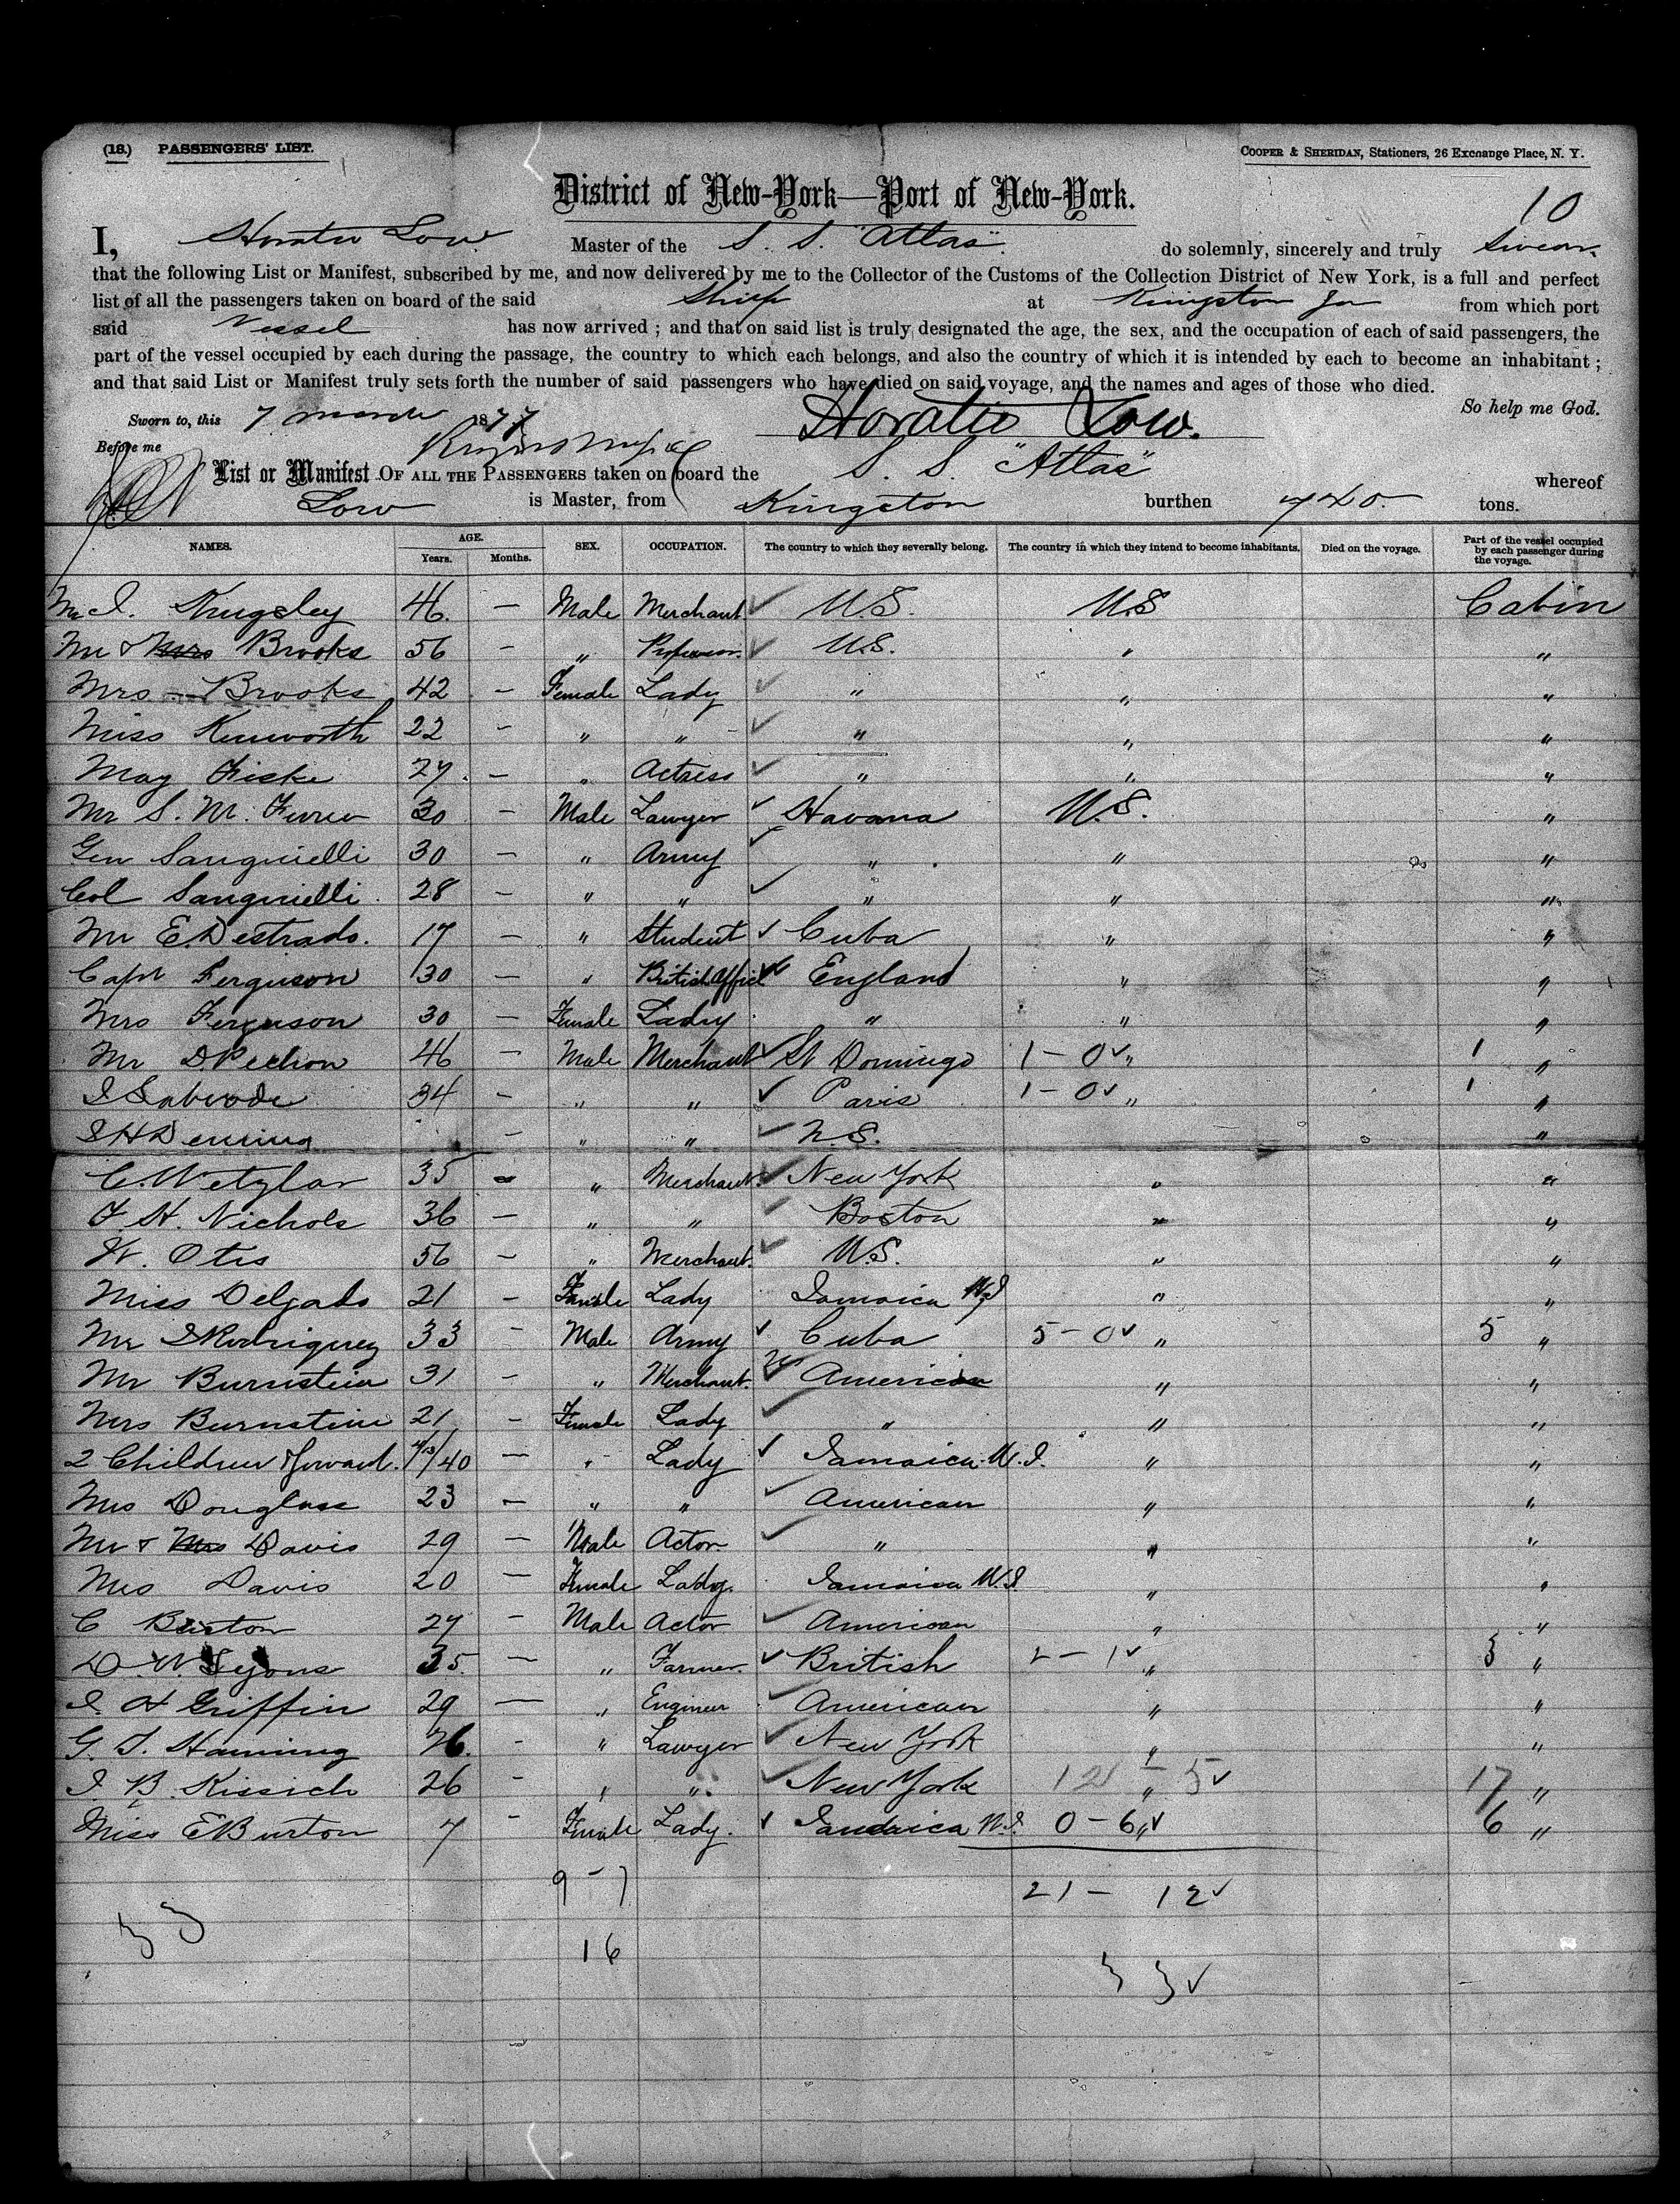 (18.) PASSENGERS' LIST.
COOPER & SHERIDAN, Stationers, 26 Exchange Place, N. Y.
District of New-York—Port of New-York.
10
I, Horatio Low Master of the S. S. "Atlas" do solemnly, sincerely and truly Swear
that the following List or Manifest, subscribed by me, and now delivered by me to the Collector of the Customs of the Collection District of New York, is a full and perfect
list of all the passengers taken on board of the said Ship at Kingston Ja from which port
said Vessel has now arrived ; and that on said list is truly designated the age, the sex, and the occupation of each of said passengers, the
part of the vessel occupied by each during the passage, the country to which each belongs, and also the country of which it is intended by each to become an inhabitant ;
and that said List or Manifest truly sets forth the number of said passengers who have died on said voyage, and the names and ages of those who died.
So help me God.
Sworn to, this 7 March 1877 Horatio Low.
Before me
List or Manifest OF ALL THE PASSENGERS taken on board the S. S. "Atlas" whereof
Low is Master, from Kingston burthen tons.
NAMES. AGE. Years. Months. SEX. OCCUPATION. The country to which they severally belong. The country in which they intend to become inhabitants. Died on the voyage. Part of the vessel occupied by each passenger during the voyage.
Mr I. Kingsley 46. — Male Merchant U.S. U.S Cabin
Mr & Mrs Brooks 56 - " Professor. U.S. " "
Mrs Brooks 42 - Female Lady " " "
Miss Kenworth 22 - " " " " "
May Fiske 27. - " Actress " " "
Mr S. M. 30 - Male Lawyer Havana U.S. "
Gen Sanguielli 30 - " Army " " "
Col Sanguielli. 28 - " " " " "
Mr E Destrado. 17 - " Student Cuba " "
Capt Ferguson 30 - " British Offic England " "
Mrs Ferguson 30 - Female Lady " " "
Mr D. Pechon 46 - Male Merchant St Domingo 1 - 0 " 1 "
34 - " " Paris 1 - 0 " 1 "
I H Denning - " " U.S. "
C. Wetzlar 35 - " Merchant. New York " "
F. H. Nichols 36 - " " Boston " "
W. Otis 56 - " Merchant. U.S. " "
Miss Delgado 21 - Female Lady Jamaica W.I " "
Mr Rodriguez 33 - Male Army Cuba 5 - 0 " 5 "
Mr Burnstein 31 - " Merchant. American " "
Mrs Burnstein 21 - Female Lady " " "
2 Children 40 - " Lady Jamaica W.I. " "
Mrs Douglass 23 - " " American " "
Mr & Mrs Davis 29 - Male Actor " " "
Mrs Davis 20 - Female Lady. Jamaica W.I " "
C Burton 27 - Male Actor American " "
D. W. Lyons 35. - " Farmer. British 2 - 1 " 3 "
I. H Griffin 29 - " Engineer American " "
G. T. Hanning 26. - " Lawyer New York " "
I. B. Kissich 26 - " " New York 12 - 5 " 17 "
Miss E Burton 7 - Female Lady. Jamaica W.I. 0 - 6 " 6 "
9 - 7 21 - 12
33 16
33